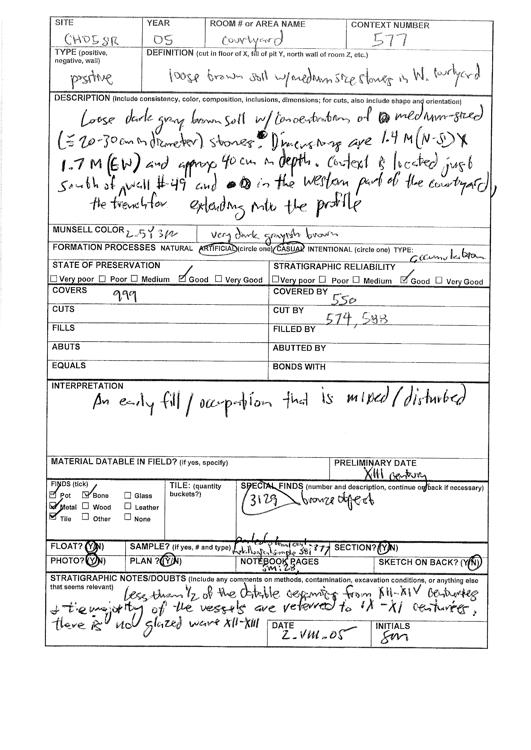 SITE YEAR ROOM # or AREA NAME CONTEXT NUMBER
CHD5SR 05 courtyard 577
TYPE (positive, negative, wall) DEFINITION (cut in floor of X, fill of pit Y, north wall of room Z, etc.)
positive loose brown soil w/medium size stones in W. courtyard
DESCRIPTION (include consistency, color, composition, inclusions, dimensions; for cuts, also include shape and orientation)
Loose dark gray brown soil w/ concentration of medium-sized
(≈20-30cm in diameter) stones. Dimensions are 1.4 M (N-S) X
1.7 M (EW) and approx 40 cm in depth. Context is located just
south of wall #49 and in the western part of the courtyard,
the trench for extending into the profile
MUNSELL COLOR 2.5Y 3/2 very dark grayish brown
FORMATION PROCESSES NATURAL ARTIFICIAL (circle one) CASUAL INTENTIONAL (circle one) TYPE: accumulation
STATE OF PRESERVATION STRATIGRAPHIC RELIABILITY
Very poor Poor Medium Good Very Good Very poor Poor Medium Good Very Good
COVERS 999 COVERED BY 550
CUTS CUT BY 574, 588
FILLS FILLED BY
ABUTS ABUTTED BY
EQUALS BONDS WITH
INTERPRETATION
An early fill / occupation that is mixed / disturbed
MATERIAL DATABLE IN FIELD? (if yes, specify) PRELIMINARY DATE
XIII century
FINDS (tick) TILE: (quantity buckets?) SPECIAL FINDS (number and description, continue on back if necessary)
Pot Bone Glass 3129 bronze object
Metal Wood Leather
Tile Other None
FLOAT? (Y/N) SAMPLE? (if yes, # and type) SECTION? (Y/N)
PHOTO? (Y/N) PLAN ? (Y/N) NOTEBOOK PAGES SKETCH ON BACK? (Y/N)
STRATIGRAPHIC NOTES/DOUBTS (Include any comments on methods, contamination, excavation conditions, or anything else that seems relevant)
Less than 1/2 of the datable ceramics from XII-XIV centuries
& the majority of the vessels are referred to IX-XI centuries,
there is not glazed ware XII-XIII
DATE 2-VIII-05 INITIALS